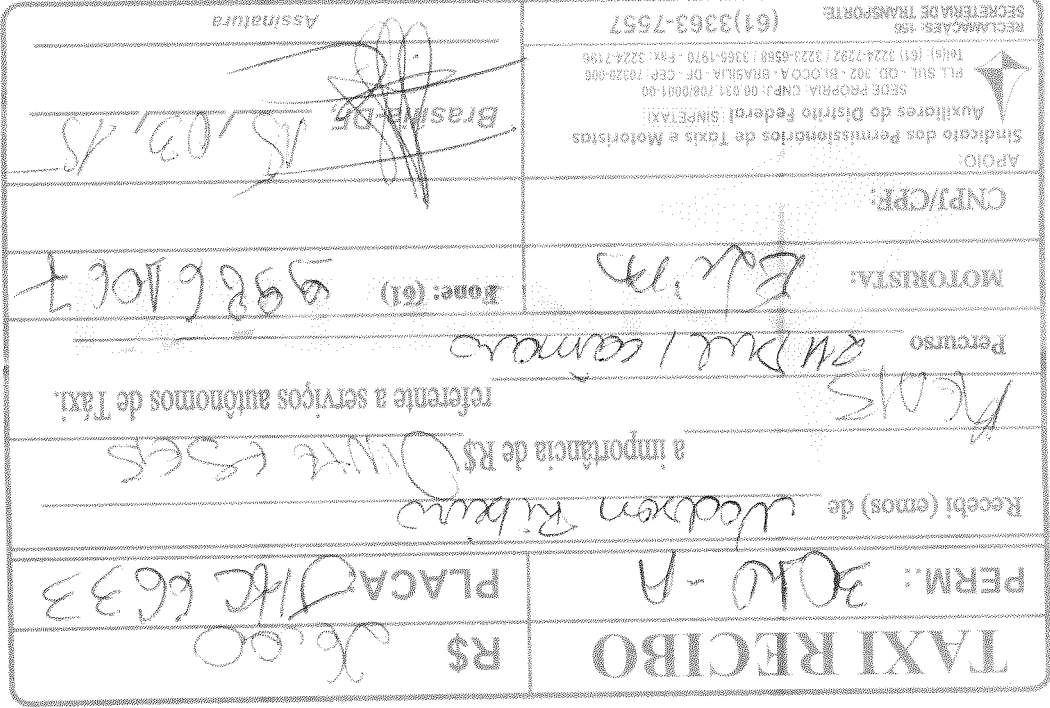 TAXI RECIBO R$ 26,00
PERM.: 3040-A PLACA: JHC 6633
Recebi (emos) de Wadson Ribeiro
a importância de R$ Vinte e Seis
Reais referente a serviços autônomos de Táxi.
Percurso / Câmara
MOTORISTA: Fone: (61) 99861067
CNPJ/CPF:
APOIO:
Sindicato dos Permissionários de Taxis e Motoristas
Auxiliares do Distrito Federal SINPETAXI
SEDE PRÓPRIA: CNPJ: 00.031.708/0001-00
PLL SUL - QD. 302 - BLOCO A - BRASÍLIA - DF - CEP: 70320-000
Tel(s): (61) 3224-7292 / 3223-6568 / 3365-1970 - Fax: 3224-7196
RECLAMAÇÕES: 156
SECRETERIA DE TRANSPORTE: (61)3363-7557
Brasília-DF, 15 / 03 / 15
Assinatura